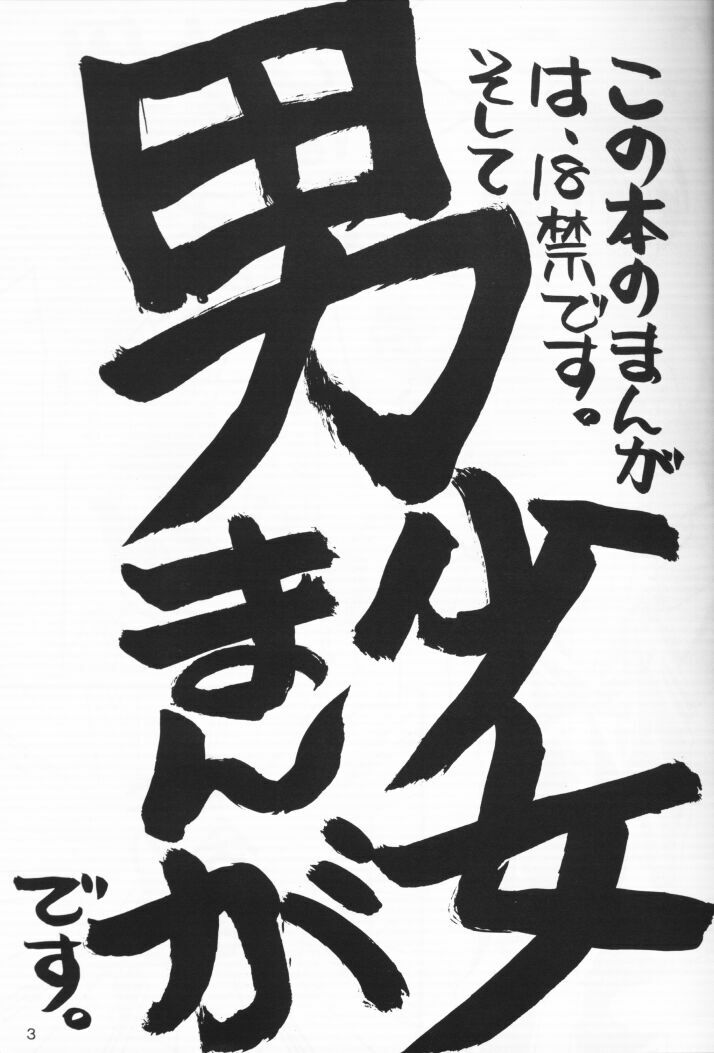 この本のまんが
は、18禁です。
そして
少女
男まんが
です。
3